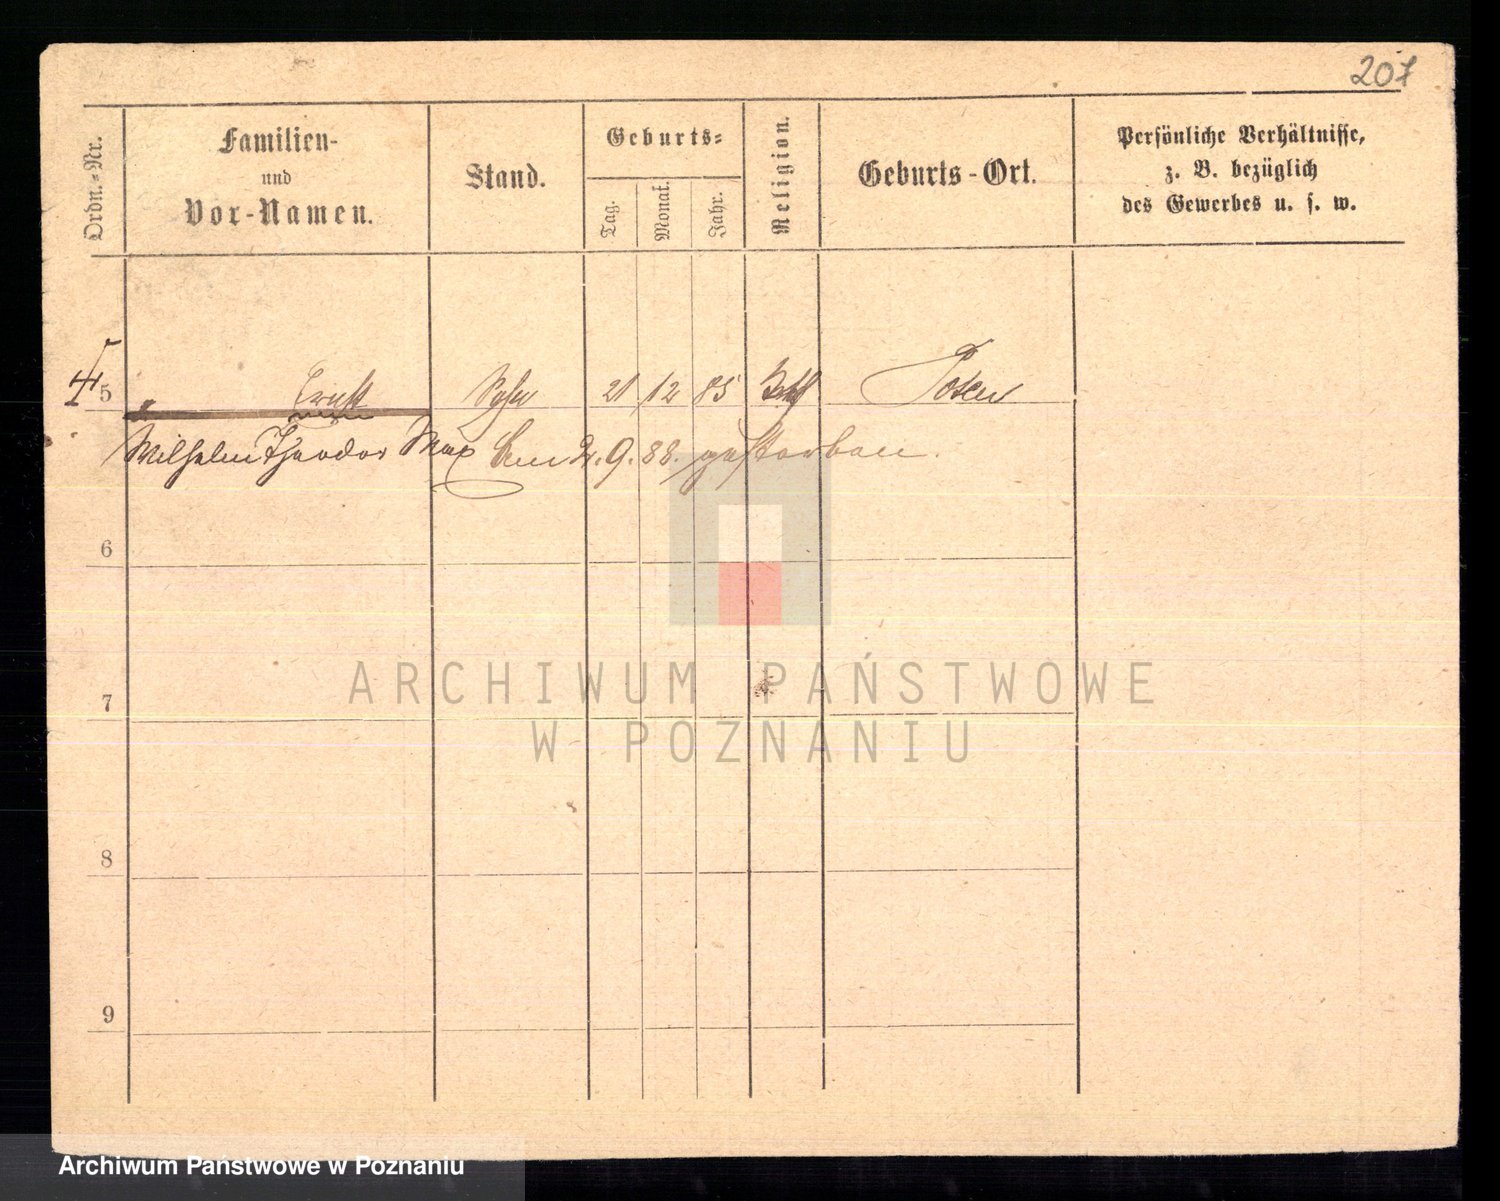 207
Ordn.-Nr.
Familien-
und
Vor-Namen.
Stand.
Geburts-
Tag.
Monat.
Jahr.
Religion.
Geburts-Ort.
Persönliche Verhältnisse,
z. B. bezüglich
des Gewerbes u. s. w.
5 Ernst Sohn 21 12 85 Posen
Wilhelm Theodor Max 9. 88. gestorben.
6
7
8
9
ARCHIWUM PAŃSTWOWE
W POZNANIU
Archiwum Państwowe w Poznaniu